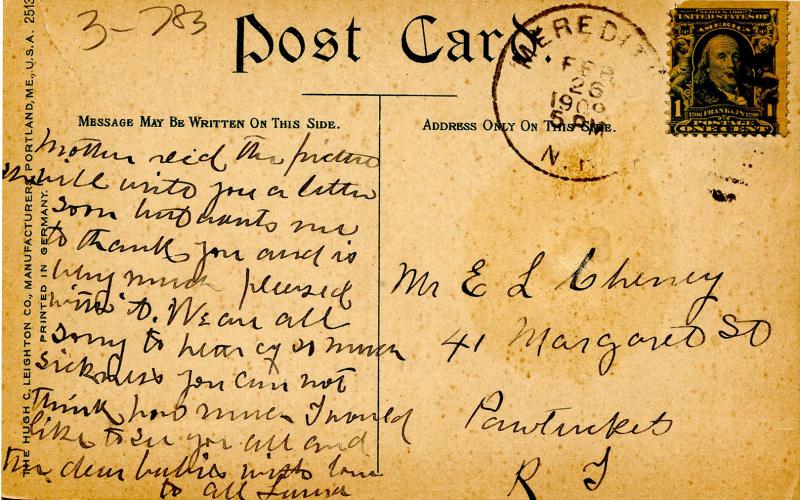 3-783
Post Card.
MEREDITH
FEB
26
190
5 PM
N.H.
SERIES 1902
UNITED STATES OF
AMERICA
1 1706 FRANKLIN 1790 1
POSTAGE
ONE CENT
MESSAGE MAY BE WRITTEN ON THIS SIDE.
ADDRESS ONLY ON THIS SIDE.
THE HUGH C. LEIGHTON CO., MANUFACTURERS, PORTLAND, ME., U.S.A. 2513
PRINTED IN GERMANY.
Mother recd the picture
will write you a letter
soon but wants me
to thank you and is
very much pleased
with it. We are all
sorry to hear of so much
sickness you can not
think how much I would
like to see you all and
the dear babies with love
to all
Mr E L Cheney
41 Margaret St
Pawtucket
R I